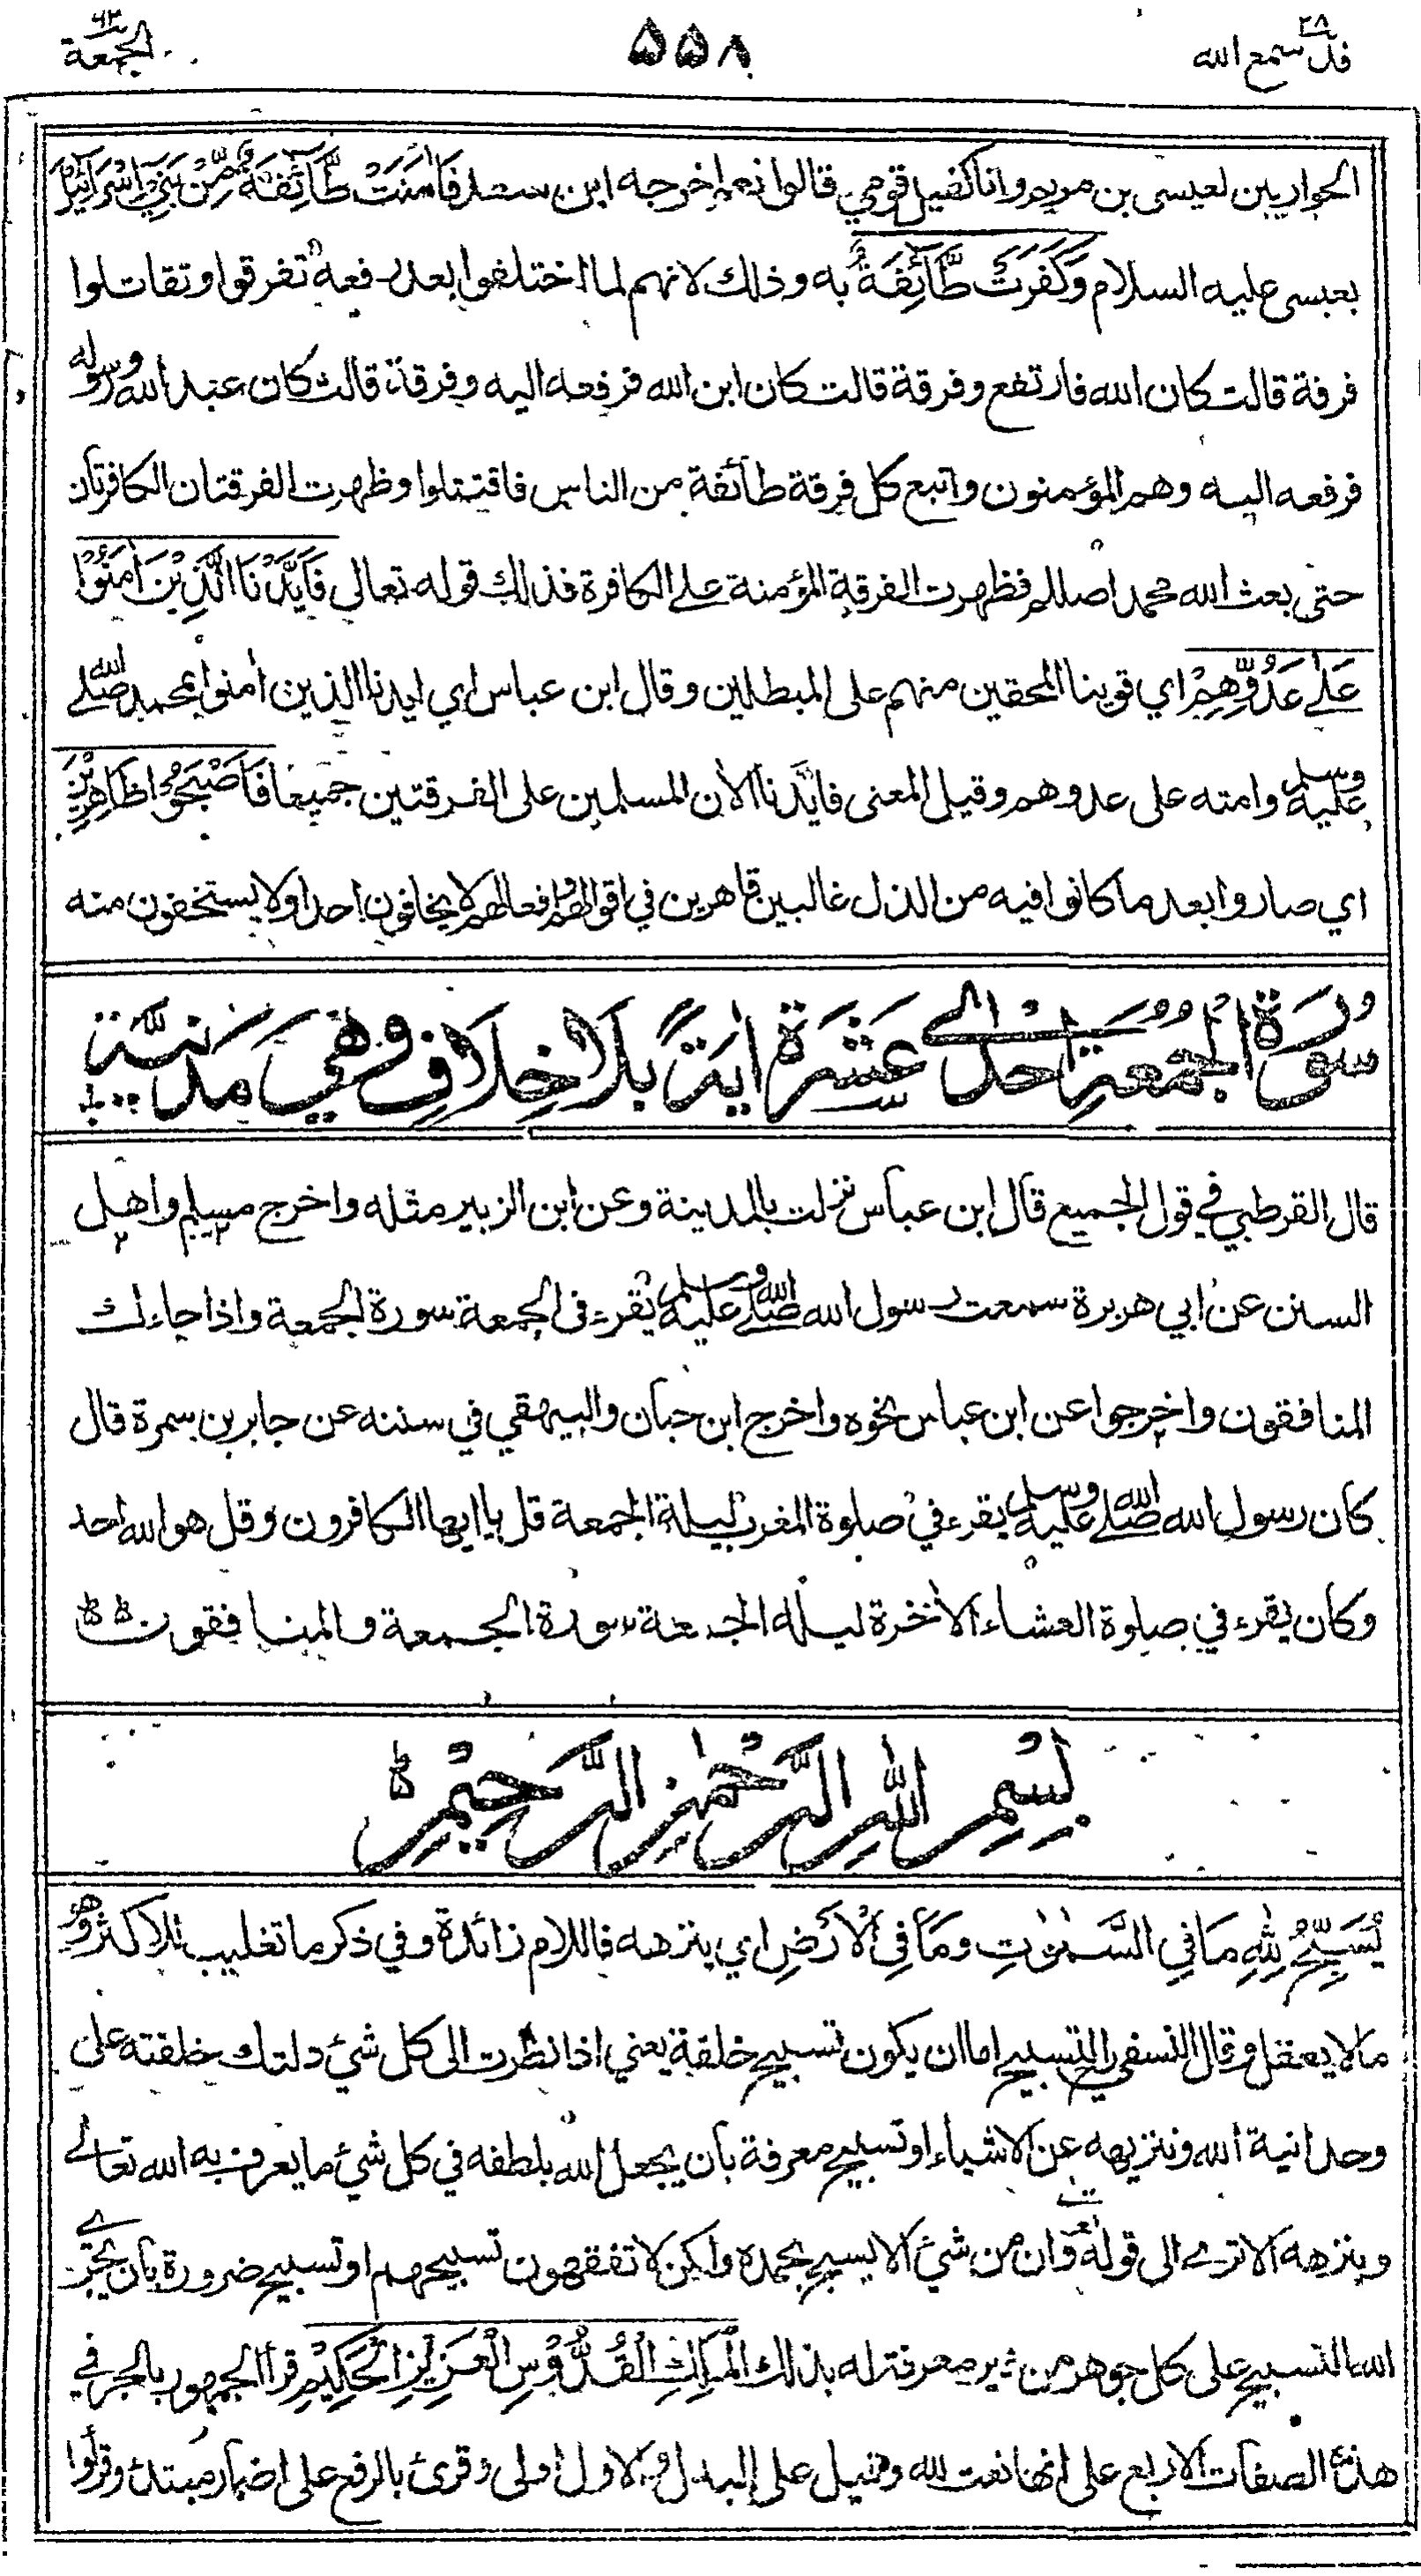 قد سمع الله ٢٨
۵۵۸
الجمعة ٦٢
الحواريين لعيسى بن مريم وانا كفيل قومي قالوا نعم اخرجه ابن سعد فَاٰمَنَتْ طَّآئِفَةٌ مِّنْ بَنِيْٓ اِسْرَآئِيْلَ
بعيسى عليه السلام وَكَفَرَتْ طَّآئِفَةٌ به وذلك لانهم لما اختلفوا بعد رفعه تفرقوا وتقاتلوا
فرقة قالت كان الله فارتفع وفرقة قالت كان ابن الله فرفعه اليه وفرقة قالت كان عبد الله ورسوله
فرفعه اليه وهم المؤمنون واتبع كل فرقة طائفة من الناس فاقتتلوا وظهرت الفرقتان الكافرتان
حتى بعث الله محمدا صللم فظهرت الفرقة المؤمنة على الكافرة فذلك قوله تعالى فَاَيَّدْنَا الَّذِيْنَ اٰمَنُوْا
عَلٰے عَدُوِّهِمْ اي قوينا المحقين منهم على المبطلين وقال ابن عباس اي ايدنا الذين اٰمنوا بمحمد صلے الله
عليه وسلم وامته على عدوهم وقيل المعنى فايَّدنا الاٰن المسلمين على الفرقتين جميعا فَاَصْبَحُوْا ظَاهِرِيْنَ
اي صاروا بعد ما كانوا فيه من الذل غالبين قاهرين في اقوالهم وافعالهم لا يخافون احدا ولا يستخفون منه
سُوْرَةُ الْجُمُعَةِ اِحْدٰے عَشْرَةَ اٰيَةً بِلَا خِلَافٍ وَهِيَ مَدَنِيَّةٌ
قال القرطبي في قول الجميع قال ابن عباس نزلت بالمدينة وعن ابن الزبير مثله واخرج مسلم واهل
السنن عن ابي هريرة سمعت رسول الله صلے الله عليه وسلم يقرء في الجمعة سورة الجمعة واذا جاءك
المنافقون واخرجوا عن ابن عباس نحوه واخرج ابن حبان والبيهقي في سننه عن جابر بن سمرة قال
كان رسول الله صلے الله عليه وسلم يقرء في صلوة المغرب ليلة الجمعة قل يا ايها الكافرون وقل هو الله احد
وكان يقرء في صلوة العشاء الاٰخرة ليلة الجمعة سورة الجمعة والمنافقون
بِسْمِ اللهِ الرَّحْمٰنِ الرَّحِيْمِ
يُسَبِّحُ لِلّٰهِ مَا فِي السَّمٰوٰتِ وَمَا فِي الْاَرْضِ اي ينزهه فاللام زائدة وفي ذكر ما تغليب للاكثر وهو
مالا يعقل وقال النسفي رح التسبيح اما ان يكون تسبيح خلقة يعني اذا نظرت الى كل شئ دلتك خلقته على
وحدانية الله وتنزيهه عن الاشباه او تسبيح معرفة بان يجعل الله بلطفه في كل شئ ما يعرف به الله تعالے
وينزهه الا ترے الى قوله تع وان من شئ الا يسبح بحمده ولكن لا تفقهون تسبيحهم او تسبيح ضرورة بان يجرے
الله التسبيح على كل جوهر من غير معرفة له بذلك الْمَلِكِ الْقُدُّوْسِ الْعَزِيْزِ الْحَكِيْمِ قرأ الجمهور بالجر في
هذه الصفات الاربع على انها نعت لله وقيل على البدل والاول اولى وقرئ بالرفع على اضمار مبتدئ وقرأوا